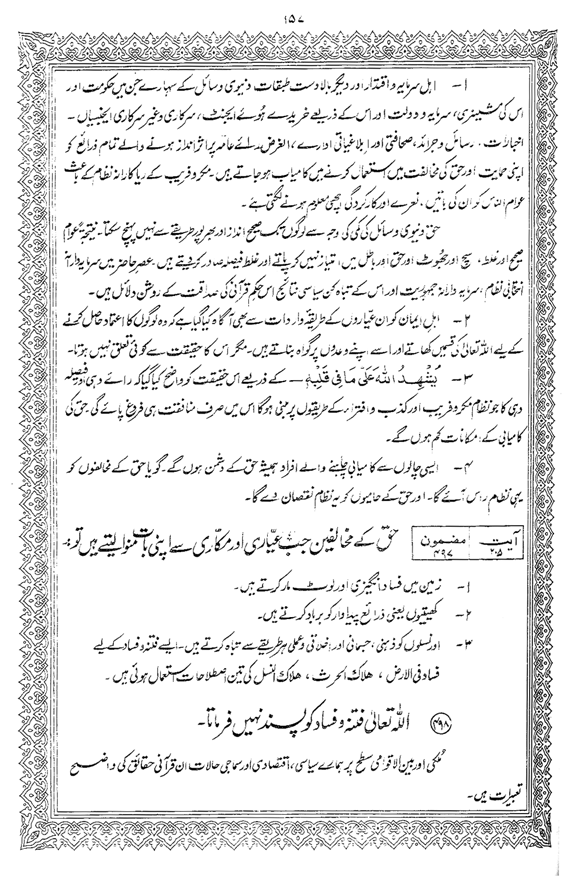 ۱۵۷
۱- اہل سرمایہ و اقتدار اور دیگر بالادست طبقات دنیوی وسائل کے سہارے جن میں حکومت اور
اس کی مشینری، سرمایہ و دولت اور اس کے ذریعے خریدے ہوئے ایجنٹ، سرکاری وغیر سرکاری ایجنسیاں۔
اخبارات، رسائل و جرائد، صحافتی اور ابلاغیاتی ادارے، الغرض رائے عامہ پر اثر انداز ہونے والے تمام ذرائع کو
اپنی حمایت اور حق کی مخالفت میں استعمال کرنے میں کامیاب ہو جاتے ہیں۔ مکر و فریب کے ریاکارانہ نظام کے باعث
عوام الناس کو ان کی باتیں، نعرے اور کارکردگی اچھی معلوم ہونے لگتی ہے۔
حق دنیوی وسائل کی کمی کی وجہ سے لوگوں تک صحیح انداز اور بھرپور طریقے سے نہیں پہنچ سکتا۔ نتیجۃً عوام
صحیح اور غلط، سچ اور جھوٹ اور حق اور باطل میں امتیاز نہیں کر پاتے اور غلط فیصلہ صادر کر دیتے ہیں۔ عصر حاضر میں سرمایہ دارانہ
انتخابی نظام، سرمایہ دارانہ جمہوریت اور اس کے تباہ کن سیاسی نتائج اس حکم قرآنی کی صداقت کے روشن دلائل ہیں۔
۲- اہل ایمان کو ان عیاروں کے طریقہ واردات سے بھی آگاہ کیا گیا ہے کہ وہ لوگوں کا اعتماد حاصل کرنے
کے لیے اللہ تعالیٰ کی قسمیں کھاتے اور اسے اپنے وعدوں پر گواہ بناتے ہیں۔ مگر اس کا حقیقت سے کوئی تعلق نہیں ہوتا۔
۳- یُشْهِدُ اللّٰهَ عَلٰی مَا فِیْ قَلْبِهٖ — کے ذریعے اس حقیقت کو واضح کیا گیا کہ رائے دہی و فیصلہ
دہی کا جو نظام مکر و فریب اور کذب و افتراء کے طریقوں پر مبنی ہوگا اس میں صرف منافقت ہی فروغ پائے گی۔ حق کی
کامیابی کے امکانات کم ہوں گے۔
۴- ایسی چالوں سے کامیابی چاہنے والے افراد ہمیشہ حق کے دشمن ہوں گے۔ گویا حق کے مخالفوں کو
یہی نظام راس آئے گا۔ اور حق کے حامیوں کو یہ نظام نقصان دے گا۔
آیت ۲۰۵ مضمون ۴۹۷ حق کے مخالفین جب عیاری اور مکاری سے اپنی بات منوا لیتے ہیں تو:
۱- زمین میں فساد انگیزی اور لوٹ مار کرتے ہیں۔
۲- کھیتوں یعنی ذرائع پیداوار کو برباد کرتے ہیں۔
۳- اور نسلوں کو ذہنی، جسمانی اور اخلاقی و عملی ہر طریقے سے تباہ کرتے ہیں۔ ایسے فتنہ و فساد کے لیے
فساد فی الارض، ھلاک الحرث، ھلاک النسل کی تین اصطلاحات استعمال ہوئی ہیں۔
۴۹۸ اللہ تعالیٰ فتنہ و فساد کو پسند نہیں فرماتا۔
ملکی اور بین الاقوامی سطح پر ہمارے سیاسی، اقتصادی اور سماجی حالات ان قرآنی حقائق کی واضح
تعبیرات ہیں۔